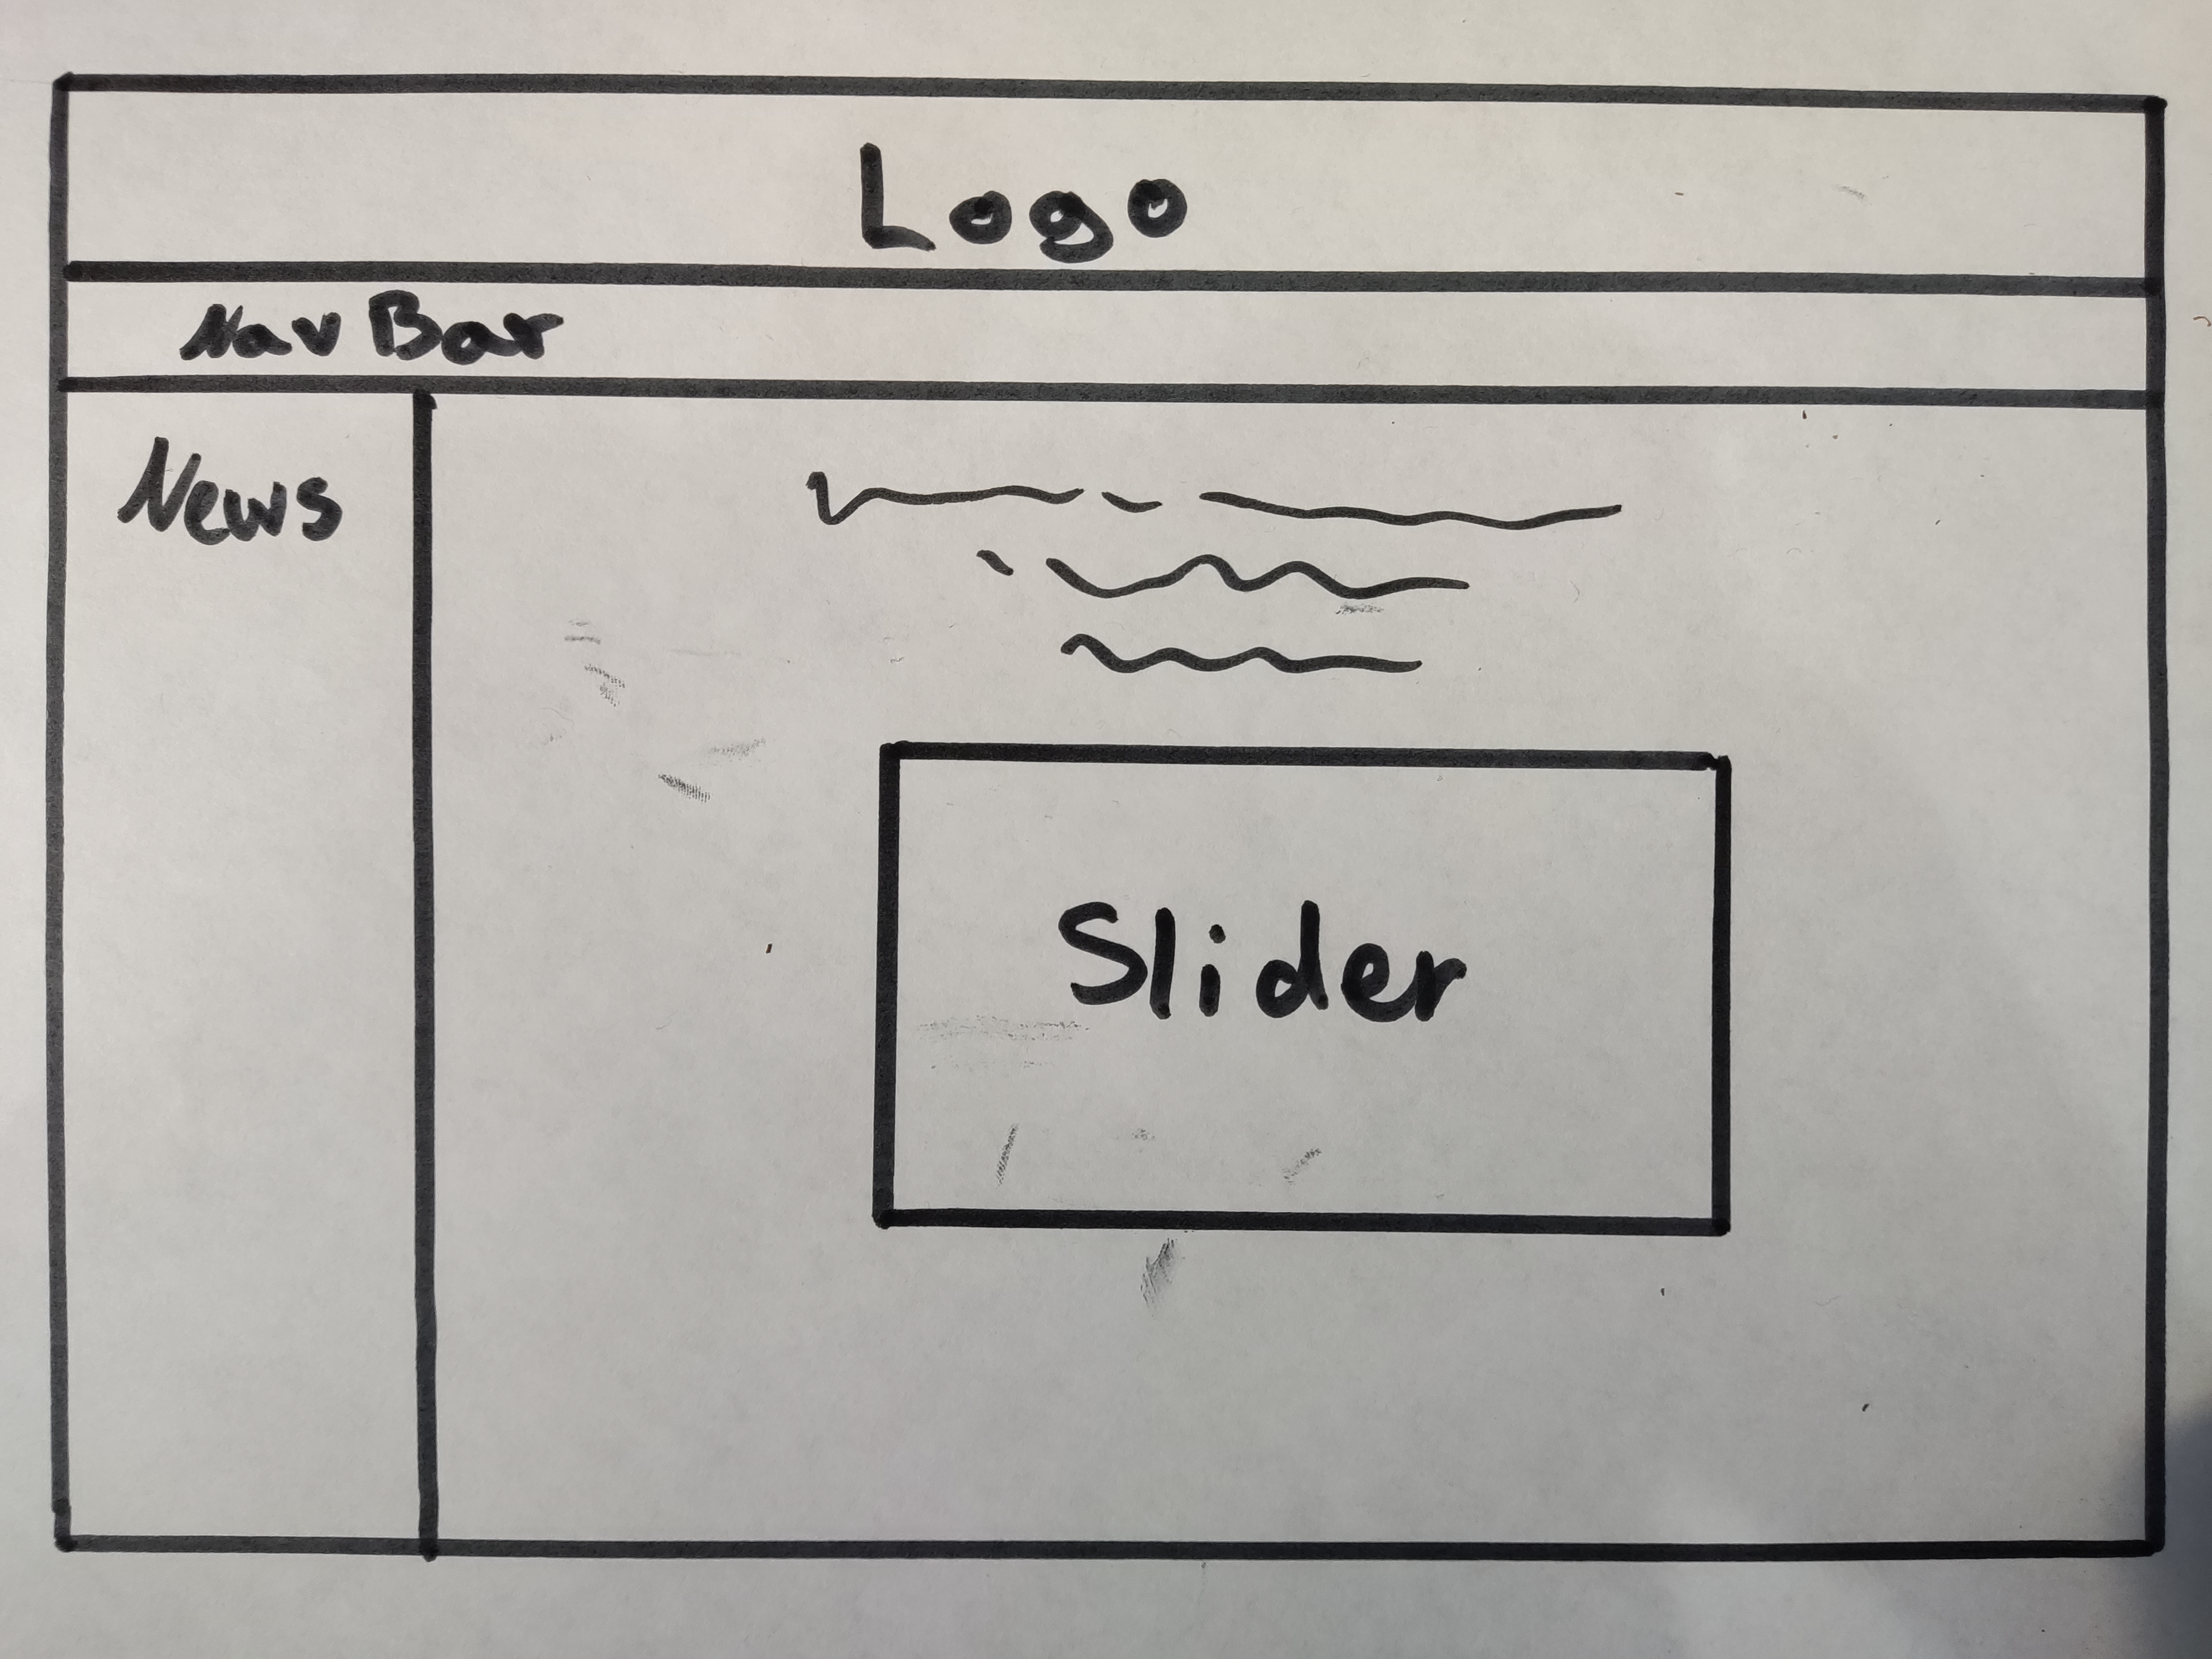 Logo
Nav Bar
News
Slider